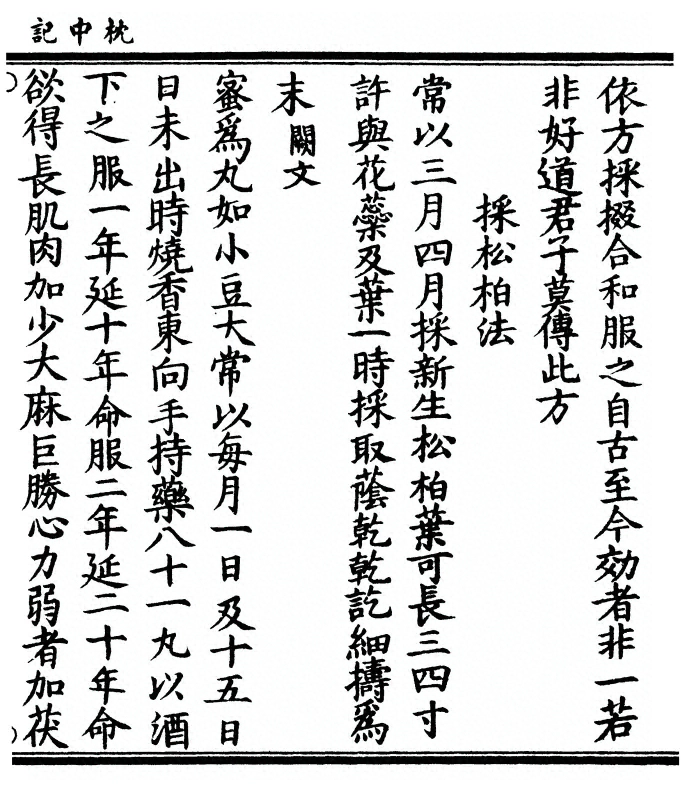 枕中記
依方採掇合和服之自古至今効者非一若
非好道君子莫傳此方
採松柏法
常以三月四月採新生松柏葉可長三四寸
許與花蘂及葉一時採取蔭乾乾訖細擣爲
末闕文
蜜爲丸如小豆大常以每月一日及十五日
日未出時燒香東向手持藥八十一丸以酒
下之服一年延十年命服二年延二十年命
欲得長肌肉加少大麻巨勝心力弱者加茯